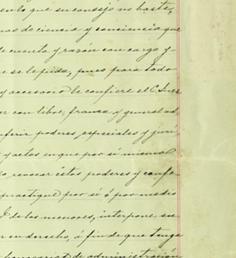 en lo que su consejo no baste,
de ciencia y conciencia que
de cuenta y razón con cargo y
e se le pida, pues para todo
y accesorio le confiere el C. Juez
con libre, franca y general ad
nferir poderes, especiales y
y actos en que por si
o, revocar éstos poderes y confe
practique por sí ó por medio
de los menores, interpone su
en derecho, á fin de que tenga
de administración